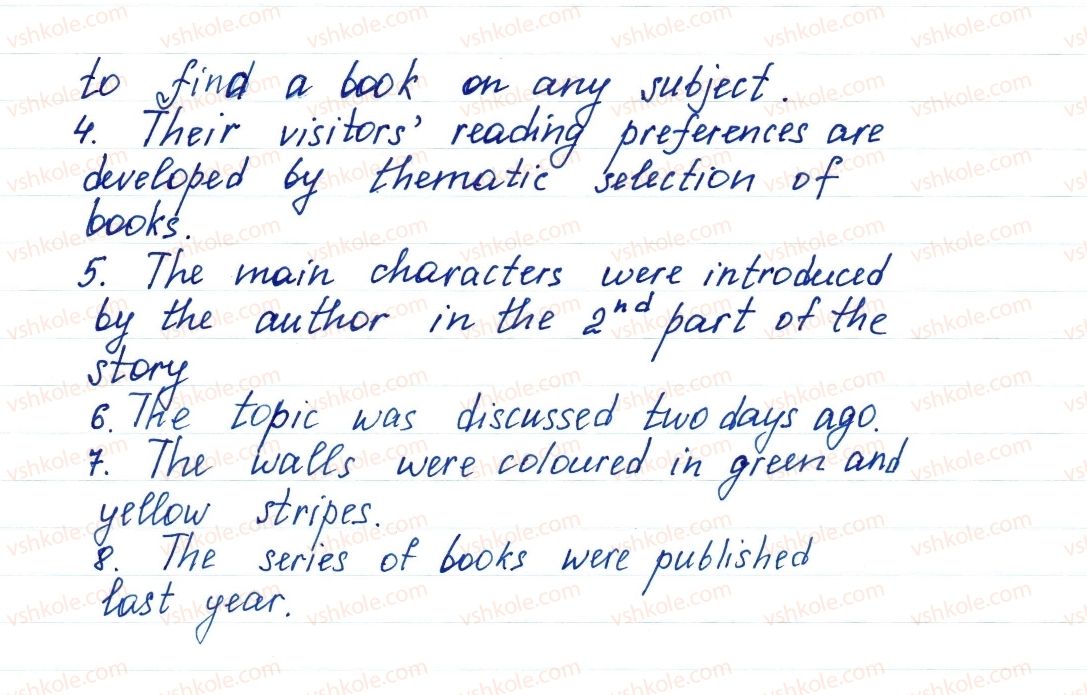 to find a book on any subject.
4. Their visitors' reading preferences are
developed by thematic selection of
books.
5. The main characters were introduced
by the author in the 2nd part of the
story
6. The topic was discussed two days ago.
7. The walls were coloured in green and
yellow stripes.
8. The series of books were published
last year.